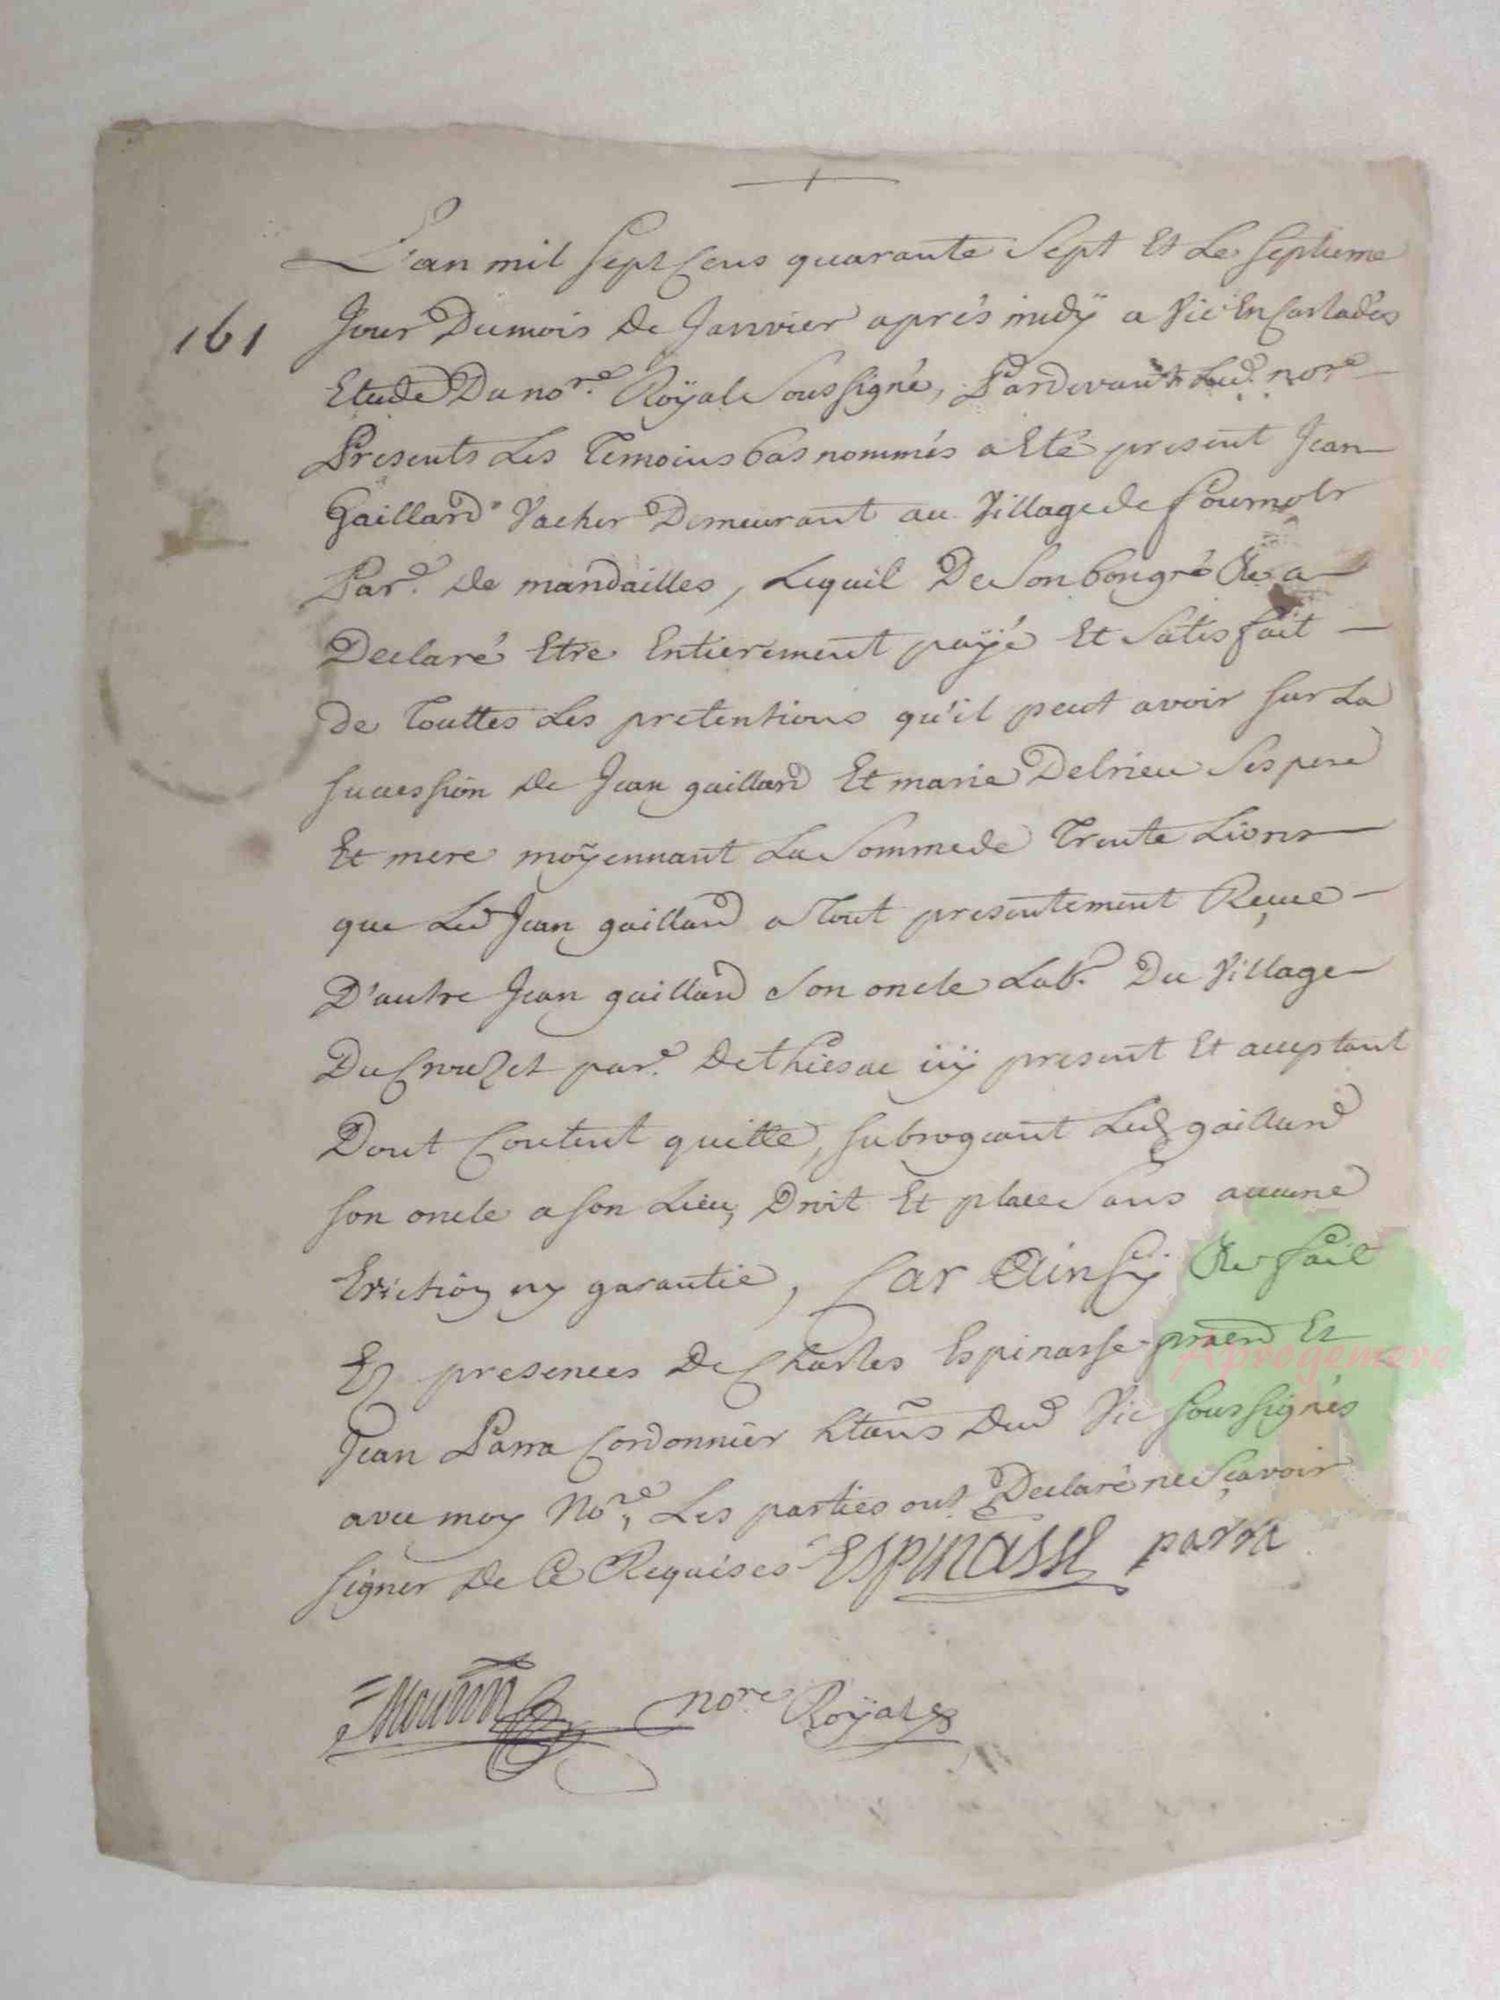 L'an mil sept Cens quarante sept Et Le septieme
161
Jour Dumois de Janvier aprés midÿ a Vic En Carladés
Etude Du no.re Roÿal Soussigné, Pardevant Led. nore
Presents Les Temoins bas nommés a Eté present Jean
Gaillard Vacher Demeurant au Village de fournols
Par.e de mandailles, Lequil De Son bon gré a
Declaré Etre Entierement payé Et Satisfait
de Touttes Les pretentions qu'il peut avoir sur La
sucession de Jean gaillard Et marie Delrieu Ses pere
Et mere moÿennant La Somme de Trente Livres
que Led Jean gaillard a Tout presentement Reçue
D'autre Jean gaillard Son oncle Lab.r Du Village
Du Crouzet par.e de thiesac icÿ present Et aceptant
Dont Content quitte, subrogeant Led gaillard
son oncle a son Lieu, Droit Et place Sans aucune
Eviction ny garantie, Car Ainsÿ fait
Ez presences De Charles Espinasse praen Et
Jean Parra Cordonnier htans Dud Vic soussignés
avec moy No.re, Les parties ont Declaré ne Sçavoir
signer de Ce Requises Espinasse parra
nore Roÿal
Aprogemere